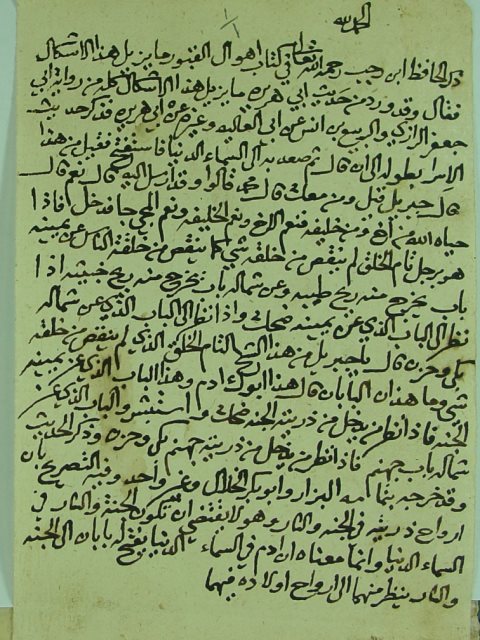 الحمد لله
ذكر الحافظ ابن رجب رحمه الله تعالى في كتاب اهوال القبور ما يزيل هذا الاشكال
فقال وقد ورد من حديث ابي هريره ما يزيل هذا الاشكال كله من رواية ابي
جعفر الرازي والربيع بن انس عن ابي العاليه وغيره عن ابي هريره فذكر حديث
الاسرا بطوله الى ان قال ثم صعد به الى السماء الدنيا فاستفتح فقيل من هذا
قال جبريل قيل ومن معك قال محمد قالوا وقد ارسل اليه قال نعم قال
حياه الله من اخ ومن خليفه فنعم الاخ ونعم الخليفه ونعم المجي جا فدخل فاذا
هو برجل تام الخلق لم ينقص من خلقه شي كما ينقص من خلقة الناس عن يمينه
باب يخرج منه ريح طيبه وعن شماله باب يخرج منه ريح خبيثه اذا
نظر الى الباب الذي عن يمينه ضحك واذا نظر الى الباب الذي عن شماله
بكى وحزن قال يا جبريل من هذا الشيخ التام الخلق الذي لم ينقص من خلقه
شي وما هذان البابان قال هذا ابوك ادم وهذا الباب الذي عن يمينه
الجنه فاذا نظر من يدخل من ذريته الجنه ضحك واستبشر والباب الذي عن
شماله باب جهنم فاذا نظر من يدخل من ذريته جهنم بكى وحزن وذكر الحديث
وقد خرجه بتمامه البزار وابو بكر الخلال وغير واحد وفيه التصريح بان
ارواح ذريته في الجنه والنار وهو لا يقتضي ان تكون الجنة والنار في
السماء الدنيا وانما معناه ان ادم في السماء الدنيا يفتح له بابان الى الجنه
والنار ينظر منهما الى ارواح اولاده فيهما